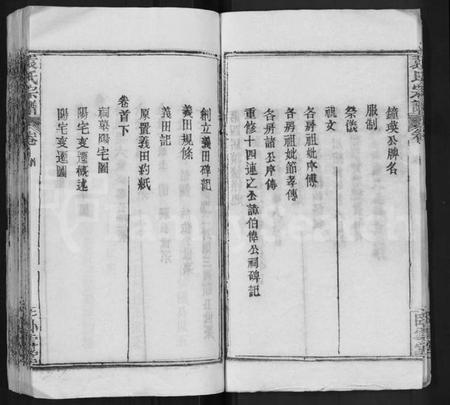 鐘英公牌名
服制
祭儀
祀文
各房祖妣本傳
各房祖妣節孝傳
各房諸公序傳
重修十四連之公諱伯偉公祠碑記
創立義田碑記
義田規條
義田記
原置義田約紙
卷首下
祠墓陽宅圖
陽宅支遷概述
陽宅支遷圖
袁氏宗譜
卷首
臥雪堂